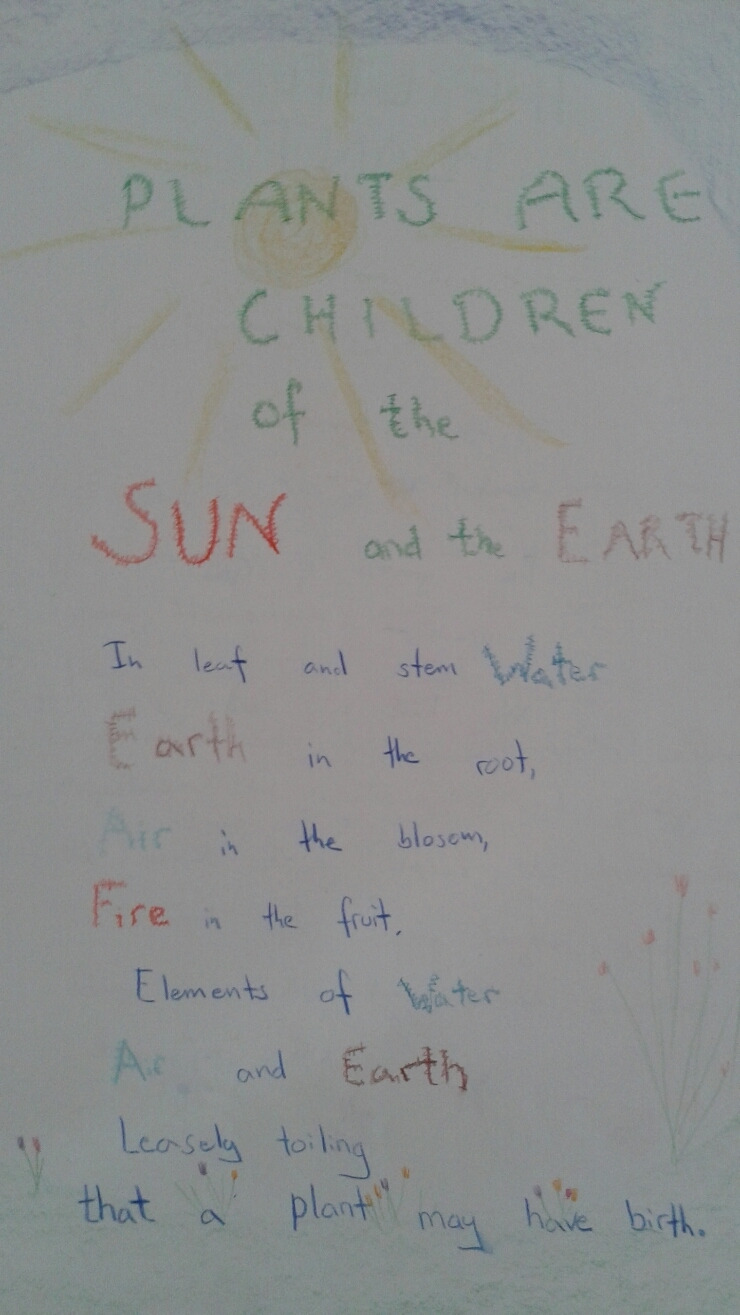 PLANTS ARE
CHILDREN
of the
SUN and the EARTH
In leaf and stem Water
Earth in the root,
Air in the blosom,
Fire in the fruit.
Elements of Water
Air and Earth
Leasely toiling
that a plant may have birth.